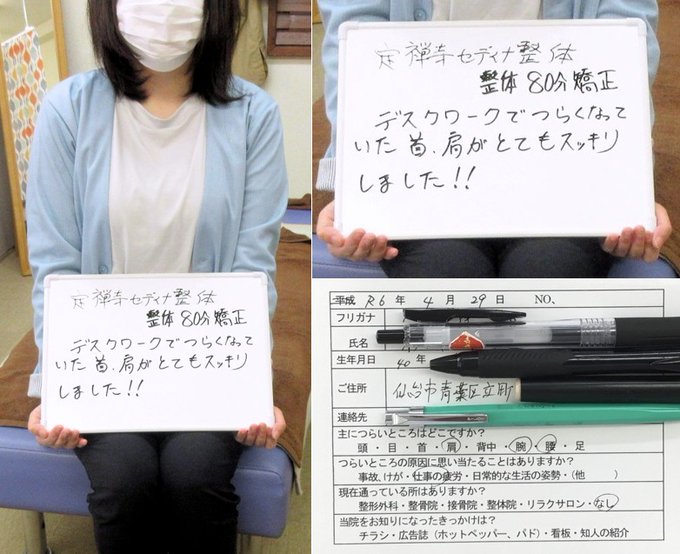 定禅寺セディナ整体
整体 80分矯正
デスクワークでつらくなって
いた首、肩がとてもスッキリ
しました!!
定禅寺セディナ整体
整体 80分矯正
デスクワークでつらくなって
いた首、肩がとてもスッキリ
しました!!
平成 R6 年 4 月 29 日 NO、
フリガナ
氏名
生年月日 40 年
ご住所 仙台市青葉区立町
連絡先
主につらいところはどこですか?
頭・目・首・肩・背中・腕・腰・足
つらいところの原因に思い当たることはありますか?
事故、けが・仕事の疲労・日常的な生活の姿勢・(他 )
現在通っている所はありますか?
整形外科・整骨院・接骨院・整体院・リラクサロン・なし
当院をお知りになったきっかけは?
チラシ・広告誌(ホットペッパー、パド)・看板・知人の紹介